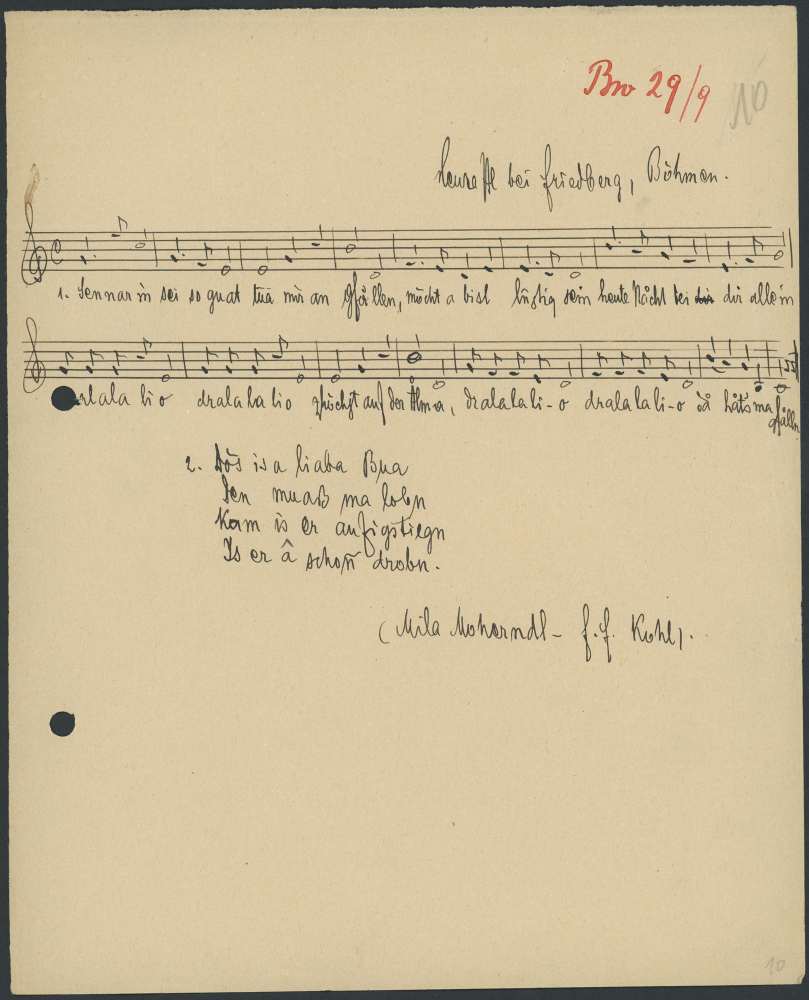 Bw 29/9
10
bei Friedberg, Böhmen.
1. Sennarin sei so guat tua mir an Gfålln, möcht a bisl lustig sein heute Nåcht bei dir allein
dralala lio zhöchst auf der Alma, dralalali-o dralalali-o då håts ma gfålln
2. Dös is a liaba Bua
Den muaß ma lobn
Kam is er aufigstiegn
Is er â schoñ drobn.
(Mila Moherndl - f. f. Kohl).
10